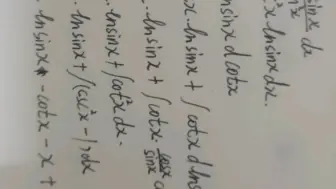 sinx/sin²x dx
²x lnsinx dx.
nsinx d cotx
x · lnsinx + ∫cotx d ln
· lnsinx + ∫cotx · cosx/sinx
· lnsinx + ∫cot²x dx ·
· lnsinx + ∫(csc²x - 1)dx
· lnsinx - cotx - x +